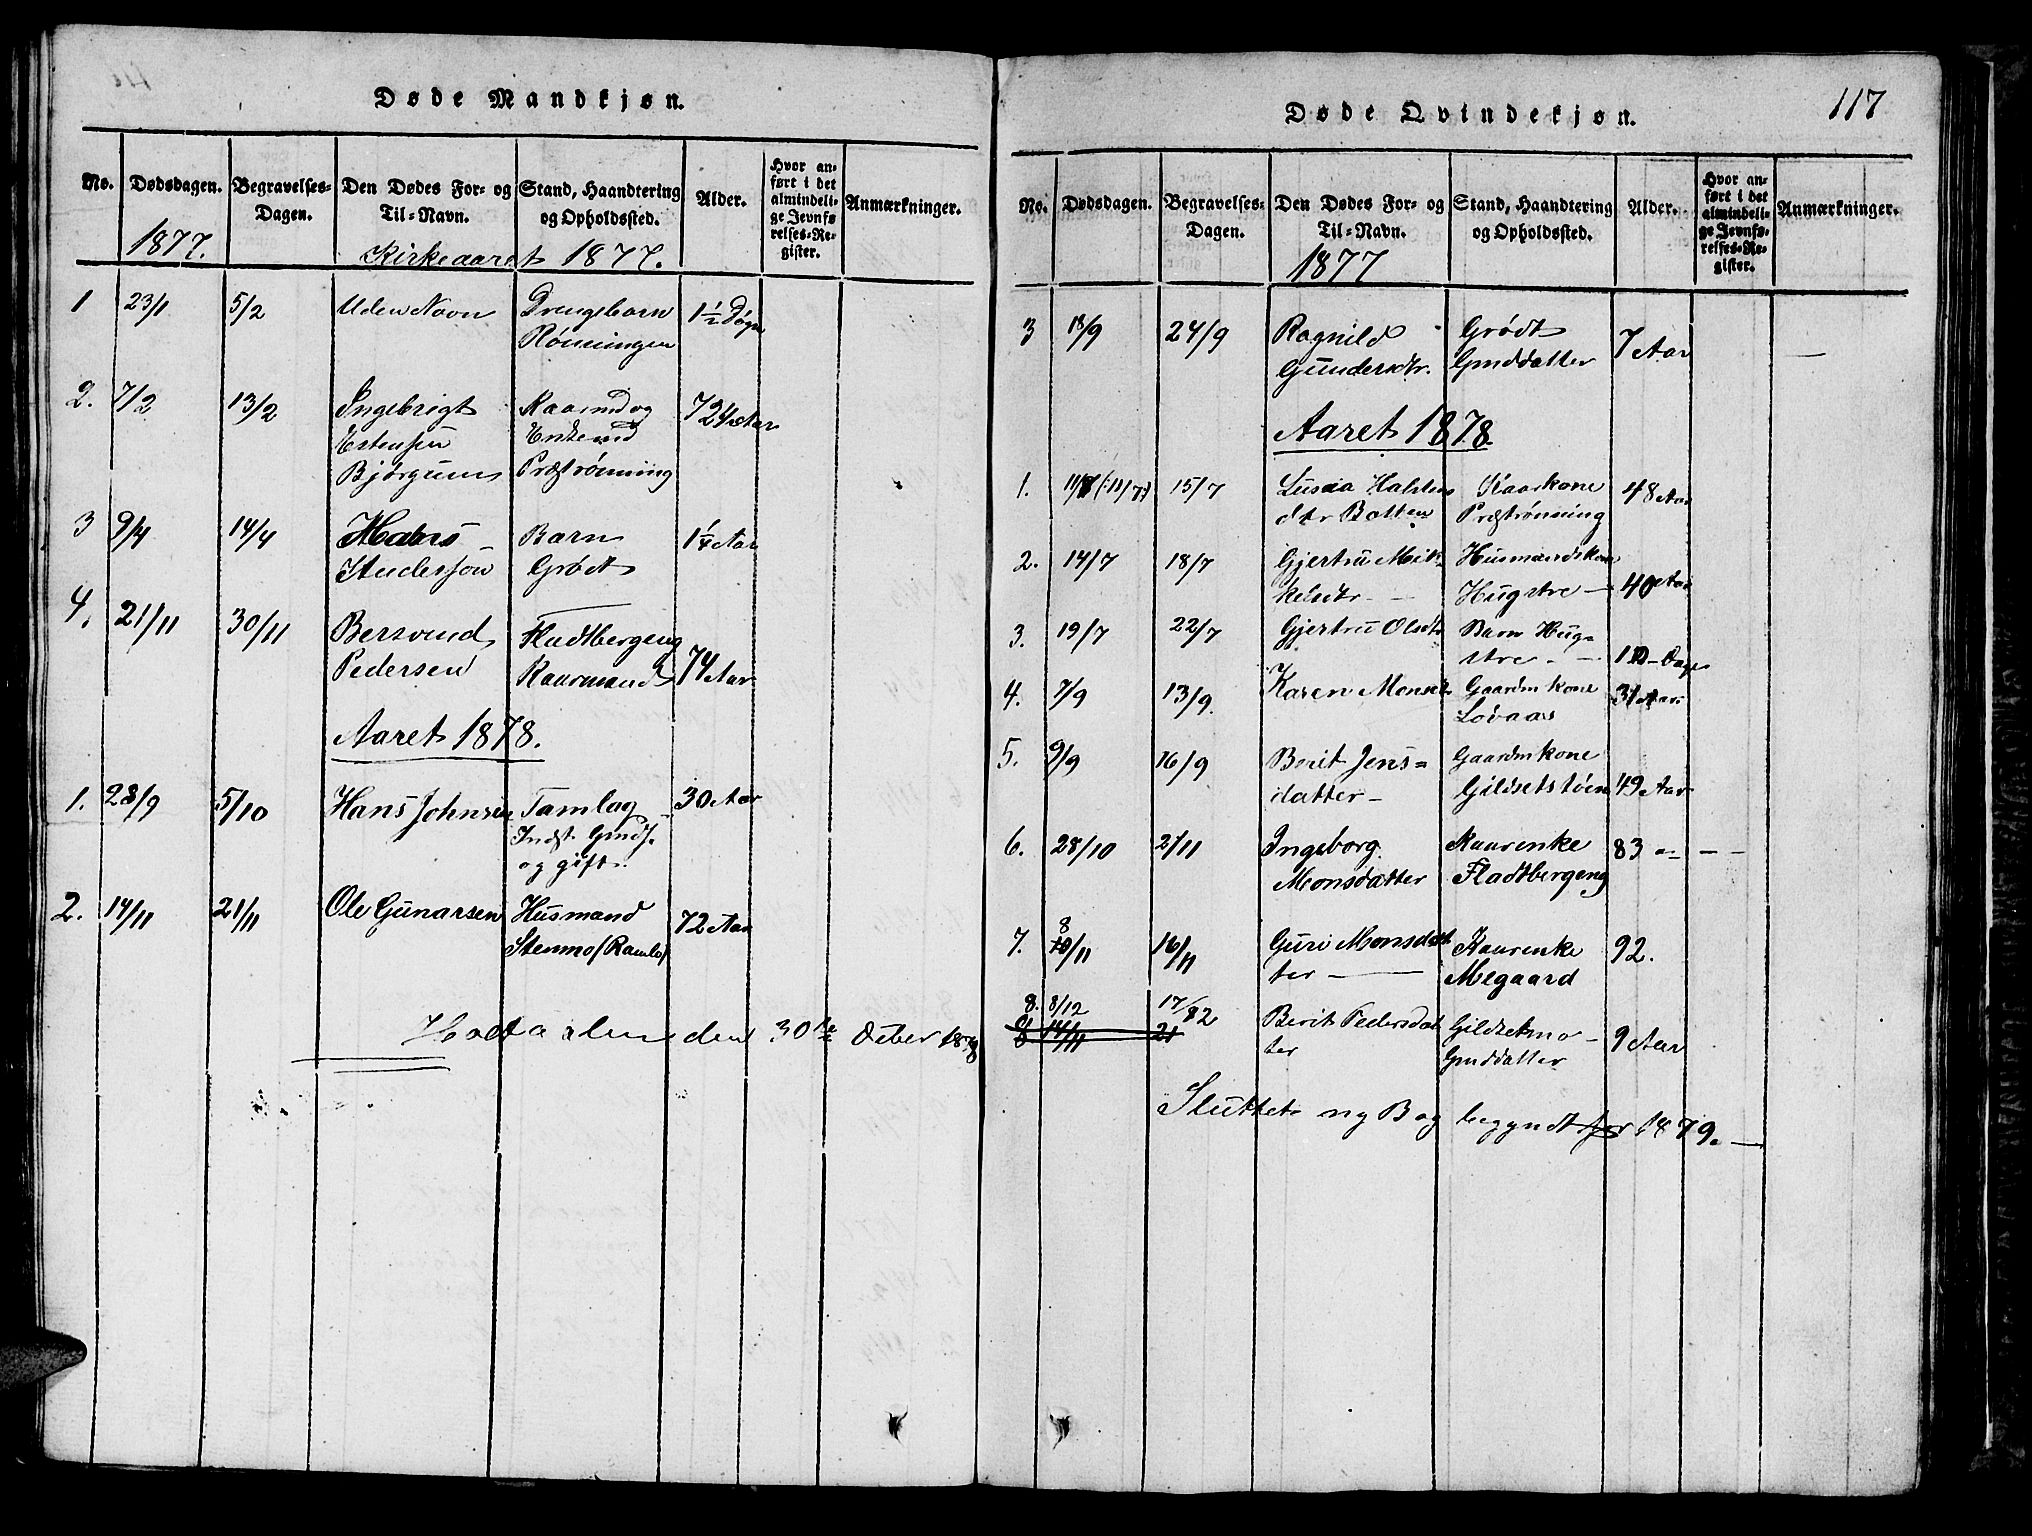 Døde Mandkjøn.
No. Dødsdagen. Begravelses-Dagen. Den Dødes For- og Til-Navn. Stand, Haandtering og Opholdssted. Alder. Hvor anført i det almindelige Jevnførelses-Register. Anmærkninger.
1877. Kirkeaaret 1877.
1 23/1 5/2 Uden Navn Drengebarn 1½ Døgn
Rønningen
2. 7/2 13/2 Ingebrigt Kaarmd og 72 Aar
Estensen Enkemd
Bjørgum Præstrønning
3 9/4 14/4 Hans Barn 1¼ Aar
Grødt
4. 21/11 30/11 Bersvend Fladtbergeng
Pedersen Kaarmand 74 Aar
Aaret 1878.
1. 28/9 5/10 Hans Johnsen Tamlag 30 Aar
Indst. Gmds.
og gift.
2. 14/11 21/11 Ole Gunarsen Husmand 72 Aar
Stenmo
Holtaalen den 30te Octber 1878
117
Døde Qvindekjøn.
No. Dødsdagen. Begravelses-Dagen. Den Dødes For- og Til-Navn. Stand, Haandtering og Opholdssted. Alder. Hvor anført i det almindelige Jevnførelses-Register. Anmærkninger.
1877
3 18/9 24/9 Ragnild Grødt 7 Aar
Gundersdtr. Gmddatter
Aaret 1878.
1. 11/7 (11/7) 15/7 Kaarkone 48 Aar
dtr Præstrønning
2. 14/7 18/7 Gjertru Mik- Husmandskone
kelsdtr - Hugstre - 40 Aar
3. 19/7 22/7 Gjertru Olsdtr Barn Hug-
stre - Dage
4. 7/9 13/9. Karen Monsd. Gaardmkone 31 Aar
Lovaas
5. 9/9 16/9 Berit Jens= Gaardmkone
datter - Gildsetstøen 49 Aar
6. 28/10 2/11 Ingeborg Kaarenke 83 "
Monsdatter Fladtbergeng
7. 8/11 16/11 Guri Monsdat Kaarenke 92.
ter - Megaard
8. 8/12 17/12 Berit Pedersdat Gildsetmo - 9 Aar
ter Gmddatter
8 14/11 21
Sluttet ny Bog begyndt for 1879. -